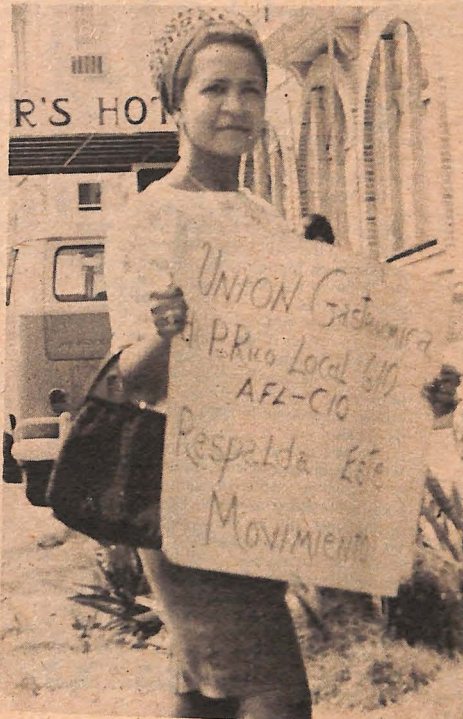 R'S HOT
UNION Gastronomica
P.Rico Local 610
AFL-CIO
Respalda Este
Movimiento